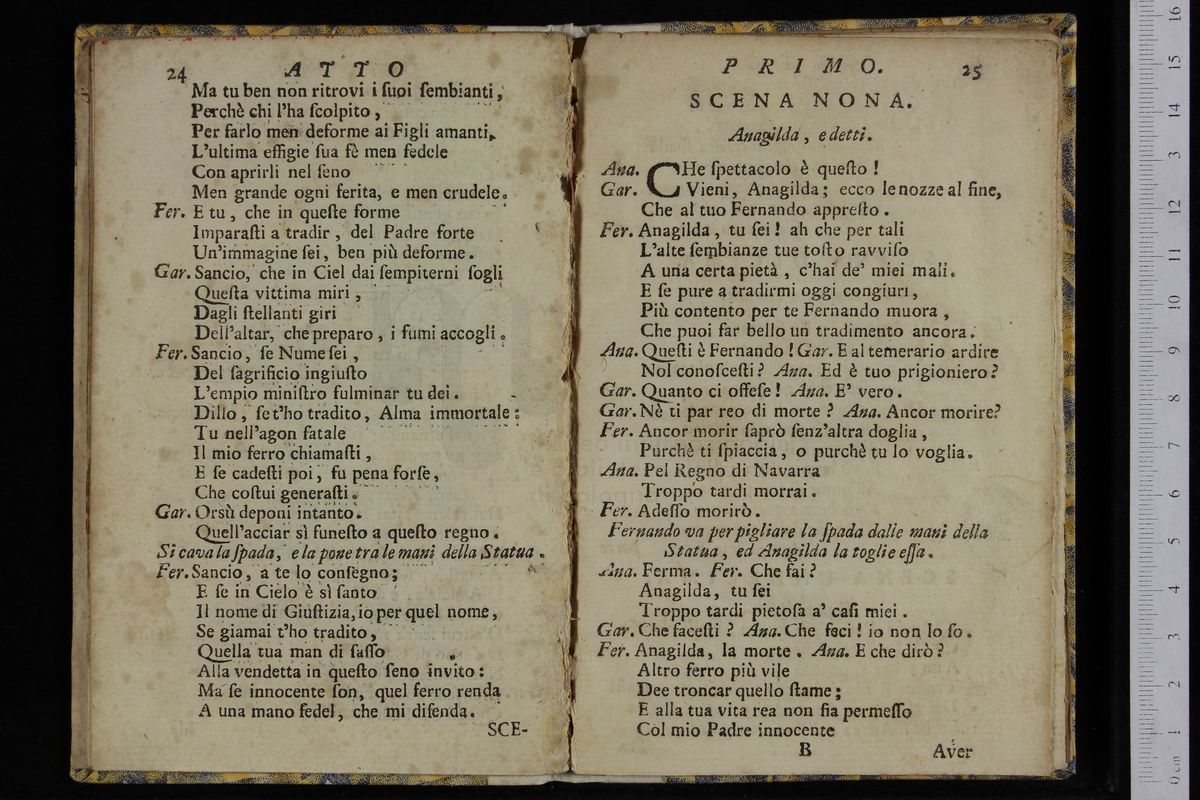 24 ATTO
Ma tu ben non ritrovi i ſuoi ſembianti,
Perchè chi l'ha ſcolpito,
Per farlo men deforme ai Figli amanti,
L'ultima effigie ſua fè men fedele
Con aprirli nel ſeno
Men grande ogni ferita, e men crudele.
Fer. E tu, che in queſte forme
Imparaſti a tradir, del Padre forte
Un'immagine ſei, ben più deforme.
Gar. Sancio, che in Ciel dai ſempiterni ſogli
Queſta vittima miri,
Dagli ſtellanti giri
Dell'altar, che preparo, i fumi accogli.
Fer. Sancio, ſe Nume ſei,
Del ſagrificio ingiuſto
L'empio miniſtro fulminar tu dei.
Dillo, ſe t'ho tradito, Alma immortale:
Tu nell'agon fatale
Il mio ferro chiamaſti,
E ſe cadeſti poi, fu pena forſe,
Che coſtui generaſti.
Gar. Orsù deponi intanto
Quell'acciar sì funeſto a queſto regno.
Si cava la ſpada, e la pone tra le mani della Statua.
Fer. Sancio, a te lo conſegno;
E ſe in Cielo è sì ſanto
Il nome di Giuſtizia, io per quel nome,
Se giamai t'ho tradito,
Quella tua man di ſaſſo
Alla vendetta in queſto ſeno invito:
Ma ſe innocente ſon, quel ferro renda
A una mano fedel, che mi difenda.
SCE-
PRIMO. 25
SCENA NONA.
Anagilda, e detti.
Ana. CHe ſpettacolo è queſto!
Gar. Vieni, Anagilda; ecco le nozze al fine,
Che al tuo Fernando appreſto.
Fer. Anagilda, tu ſei! ah che per tali
L'alte ſembianze tue toſto ravviſo
A una certa pietà, c'hai de' miei mali.
E ſe pure a tradirmi oggi congiuri,
Più contento per te Fernando muora,
Che puoi far bello un tradimento ancora.
Ana. Queſti è Fernando! Gar. E al temerario ardire
Nol conoſceſti? Ana. Ed è tuo prigioniero?
Gar. Quanto ci offeſe! Ana. E' vero.
Gar. Nè ti par reo di morte? Ana. Ancor morire?
Fer. Ancor morir ſaprò ſenz'altra doglia,
Purchè ti ſpiaccia, o purchè tu lo voglia.
Ana. Pel Regno di Navarra
Troppo tardi morrai.
Fer. Adeſſo morirò.
Fernando va per pigliare la ſpada dalle mani della
Statua, ed Anagilda la toglie eſſa.
Ana. Ferma. Fer. Che fai?
Anagilda, tu ſei
Troppo tardi pietoſa a' caſi miei.
Gar. Che faceſti? Ana. Che feci! io non lo ſo.
Fer. Anagilda, la morte. Ana. E che dirò?
Altro ferro più vile
Dee troncar quello ſtame;
E alla tua vita rea non fia permeſſo
Col mio Padre innocente
B Aver